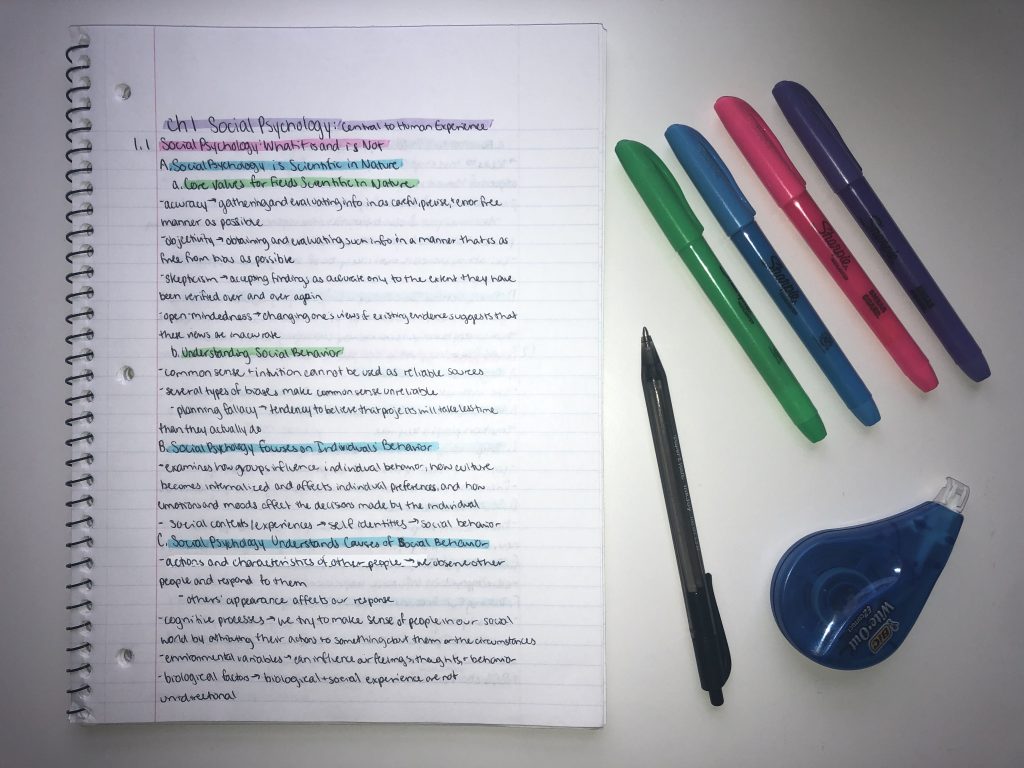 Ch 1 Social Psychology: Central to Human Experience
1.1 Social Psychology: What it is and is Not
A. Social Psychology is Scientific in Nature
a. Core Values for Fields Scientific in Nature
-accuracy → gathering and evaluating info in as careful, precise, + error free
manner as possible
-objectivity → obtaining and evaluating such info in a manner that is as
free from bias as possible
-skepticism → accepting findings as accurate only to the extent they have
been verified over and over again
-open-mindedness → changing one's views if existing evidence suggests that
these views are inaccurate
b. Understanding Social Behavior
-common sense + intuition cannot be used as reliable sources
-several types of biases make common sense unreliable
-planning fallacy → tendency to believe that projects will take less time
than they actually do
B. Social Psychology Focuses on Individuals' Behavior
-examines how groups influence individual behavior, how culture
becomes internalized and affects individual preferences, and how
emotions and moods affect the decisions made by the individual
- social contexts/experiences → self identities → social behavior
C. Social Psychology Understands Causes of Social Behavior
-actions and characteristics of other people → we observe other
people and respond to them
- others' appearance affects our response
-cognitive processes → we try to make sense of people in our social
world by attributing their actions to something about them or the circumstances
-environmental variables → can influence our feelings, thoughts, + behavior
-biological factors → biological + social experience are not
unidirectional
Sharpie
Sharpie
BIC
Wite-Out